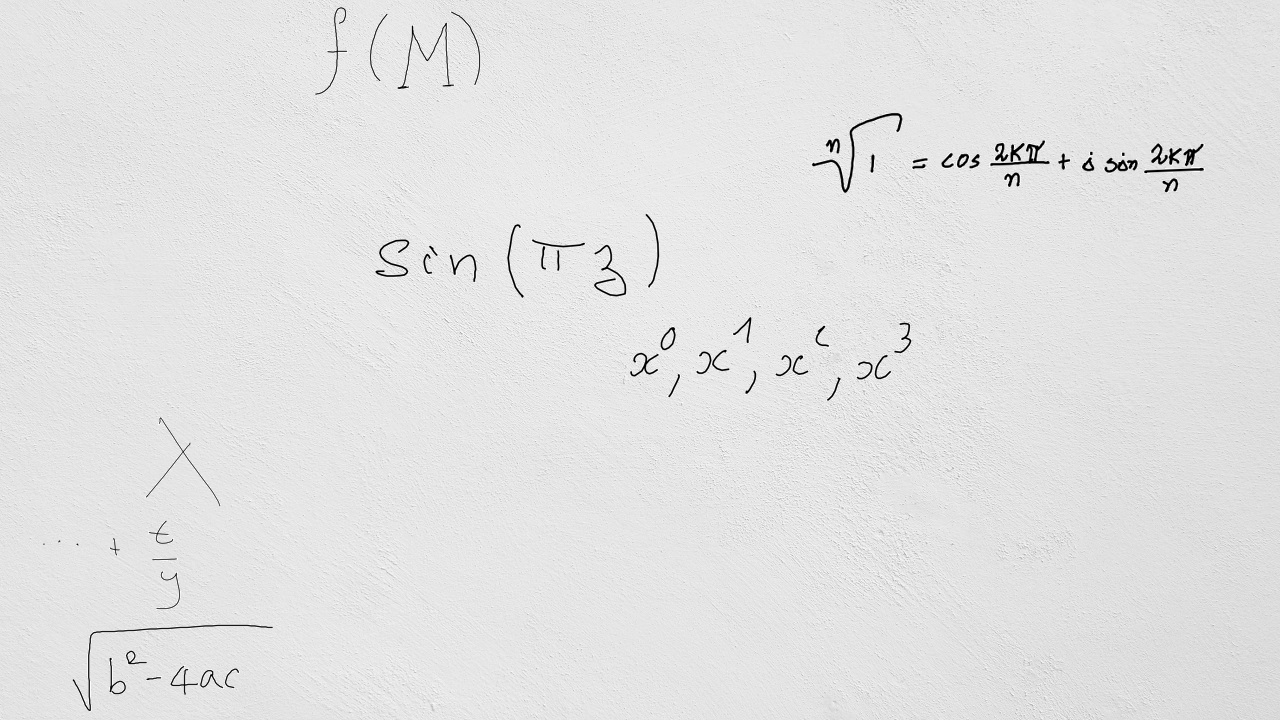 f(M)
ⁿ√1 = cos 2kπ/n + i sin 2kπ/n
sin(πz)
x⁰, x¹, xᶜ, x³
X
... + t/y
√b²-4ac